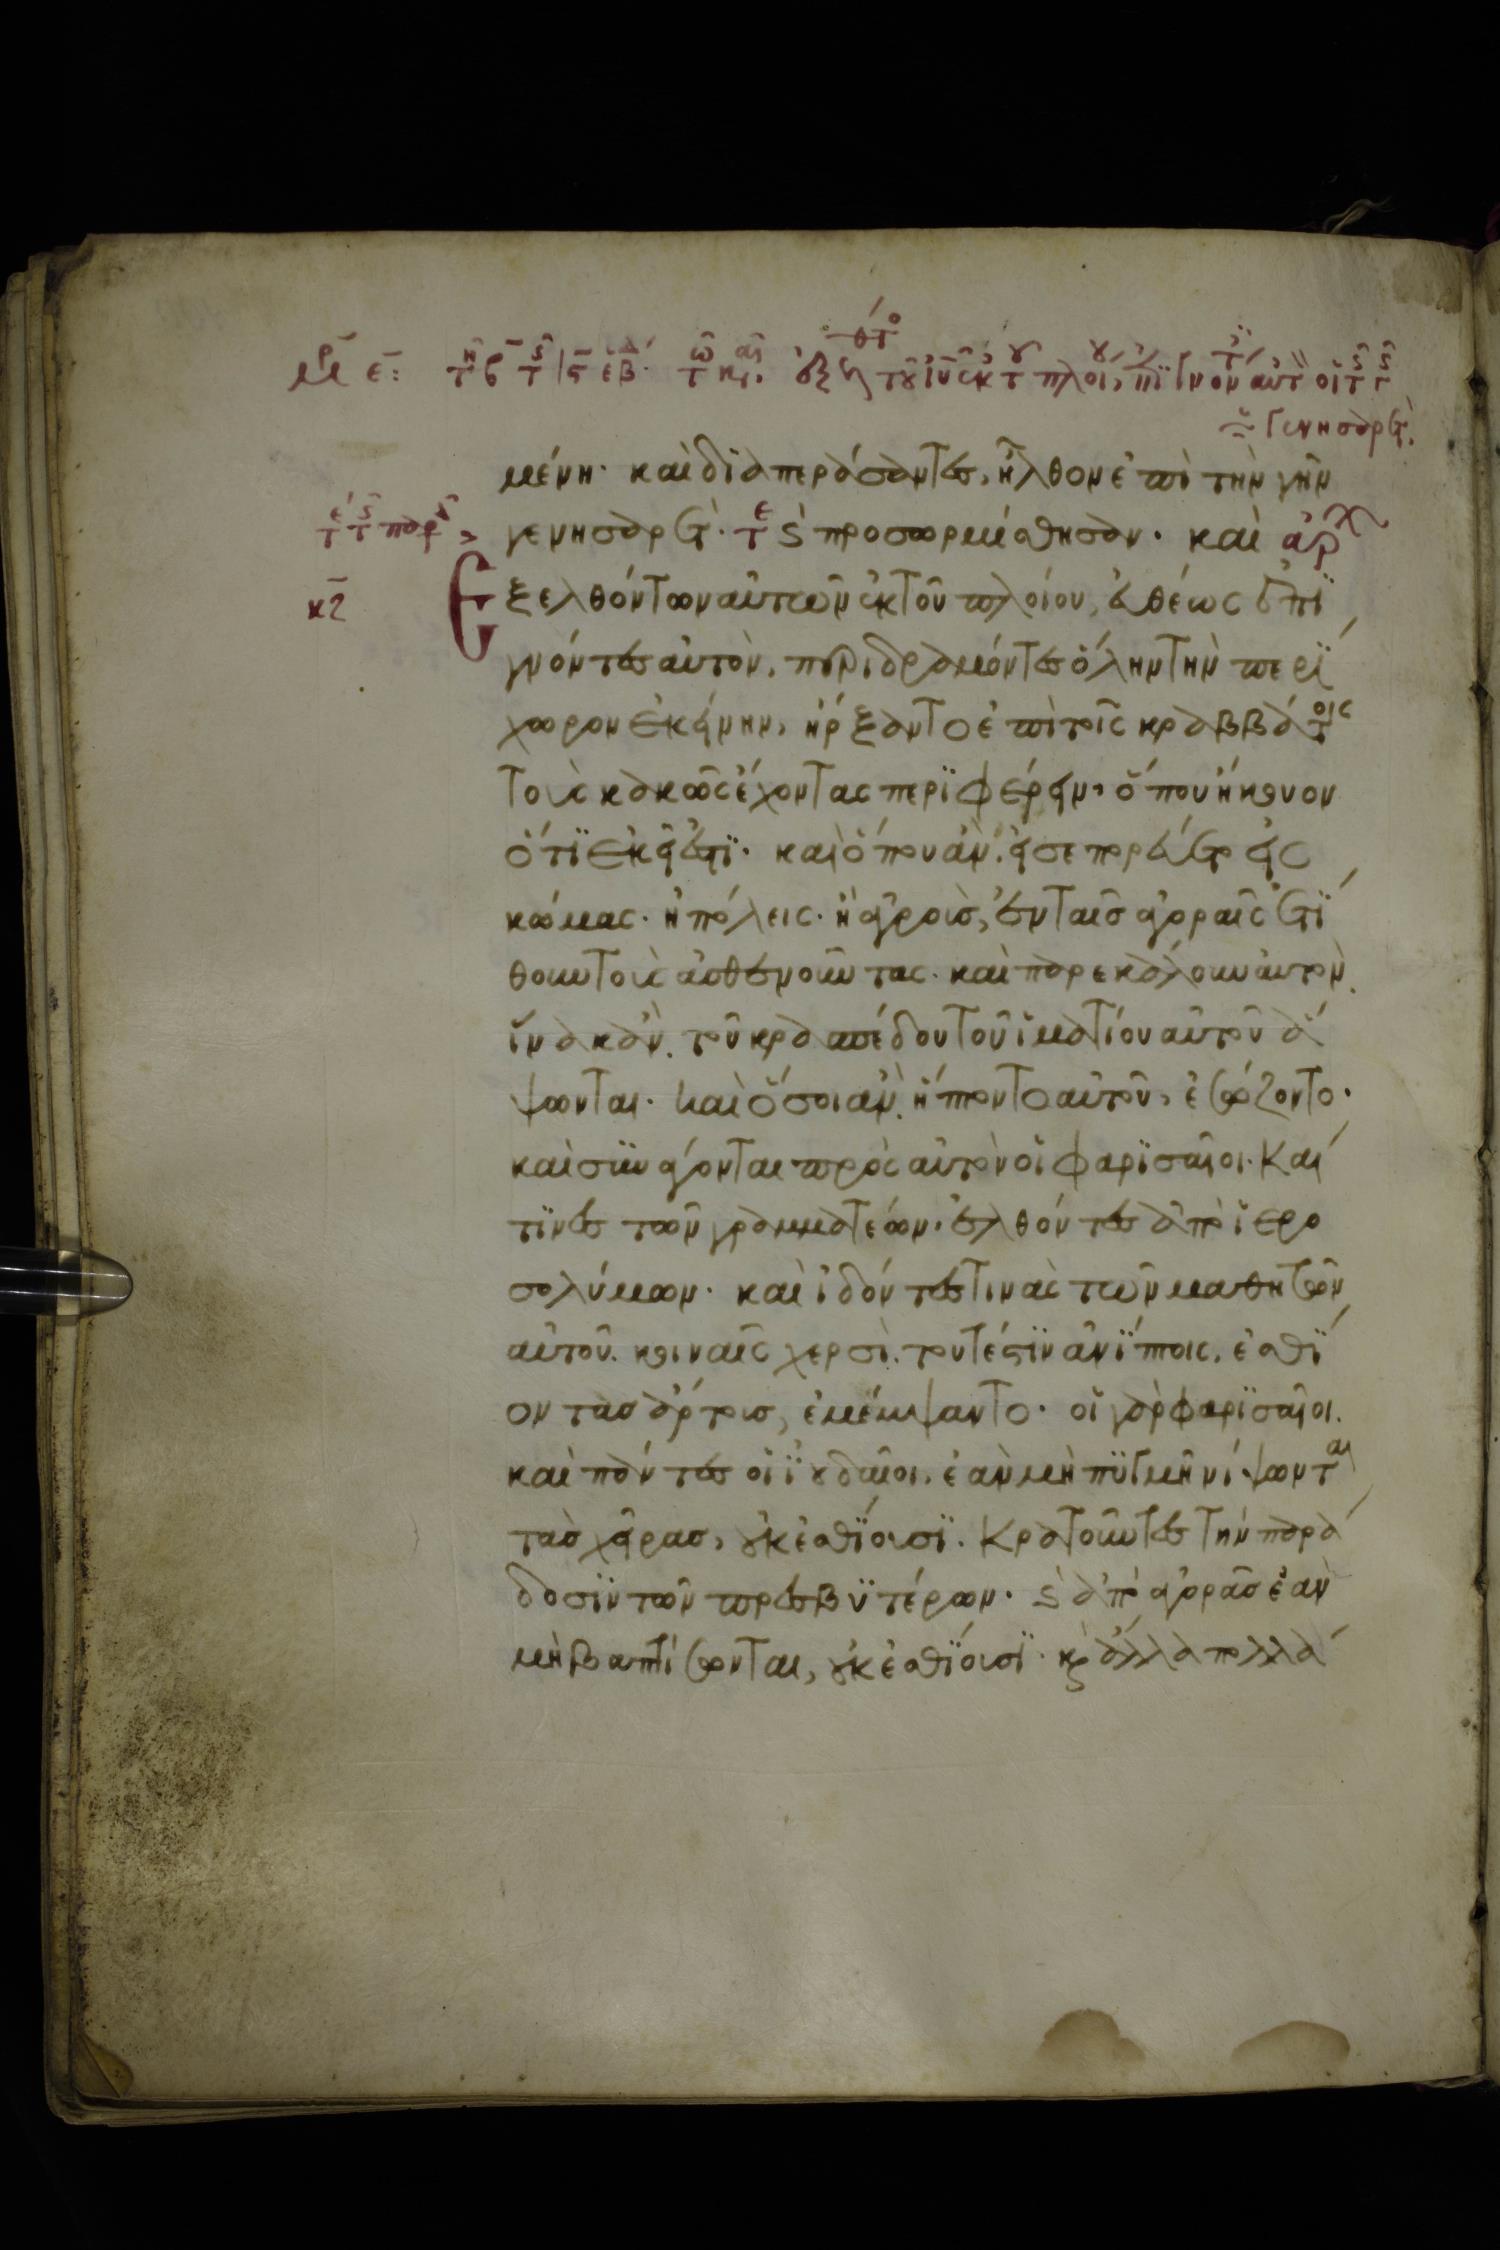 μένη· καὶ διαπεράσαντες, ἦλθον ἐπὶ τὴν γῆν
γενησαρέτ· τε ς προσωρμίσθησαν· καὶ ἀρχ
ξελθόντων αὐτῶν ἐκ τοῦ πλοίου, εὐθέως ἐπϊ
γνόντες αὐτὸν, περιδραμόντες ὅλην τὴν περί
χωρον ἐκείνην, ἤρξαντο ἐπὶ τοῖς κραββάτοις
τοὺς κακῶς ἔχοντας περϊφέρειν, ὅπου ἤκουον
ὅτϊ ἐκεῖ ἐστϊ· καὶ ὅπου ἂν εἰσεπορεύετο εἰς
κώμας· ἢ πόλεις· ἢ ἀγροὺς, ἐν ταῖς ἀγοραῖς ἐτί
θουν τοὺς ἀσθενοῦντας· καὶ παρεκάλουν αὐτὸν
ἵνα κἂν τοῦ κρασπέδου τοῦ ἱματίου αὐτοῦ ἅ
ψωνται· καὶ ὅσοι ἂν ἥπτοντο αὐτοῦ, ἐσῴζοντο·
καὶ συνάγονται πρὸς αὐτὸν οἱ φαρϊσαῖοι· Καί
τϊνες τῶν γραμματέων· ἐλθόντες ἀπὸ ἱερο
σολύμων· καὶ ἰδόντες τινὰς τῶν μαθητῶν
αὐτοῦ κοιναῖς χερσὶ τουτέστϊν ἀνίπτοις, ἐσθί
οντας ἄρτους, ἐμέμψαντο· οἱ γὰρ φαρϊσαῖοι
καὶ πάντες οἱ ϊουδαῖοι, ἐὰν μὴ πϋγμῇ νίψωνται
τὰς χεῖρας, οὐκ ἐσθίουσϊ· Κρατοῦντες τὴν παρά
δοσϊν τῶν πρεσβϋτέρων· ς ἀπὸ ἀγορᾶς ἐὰν
μὴ βαπτίσωνται, οὐκ ἐσθίουσϊ· κ ἄλλα πολλά